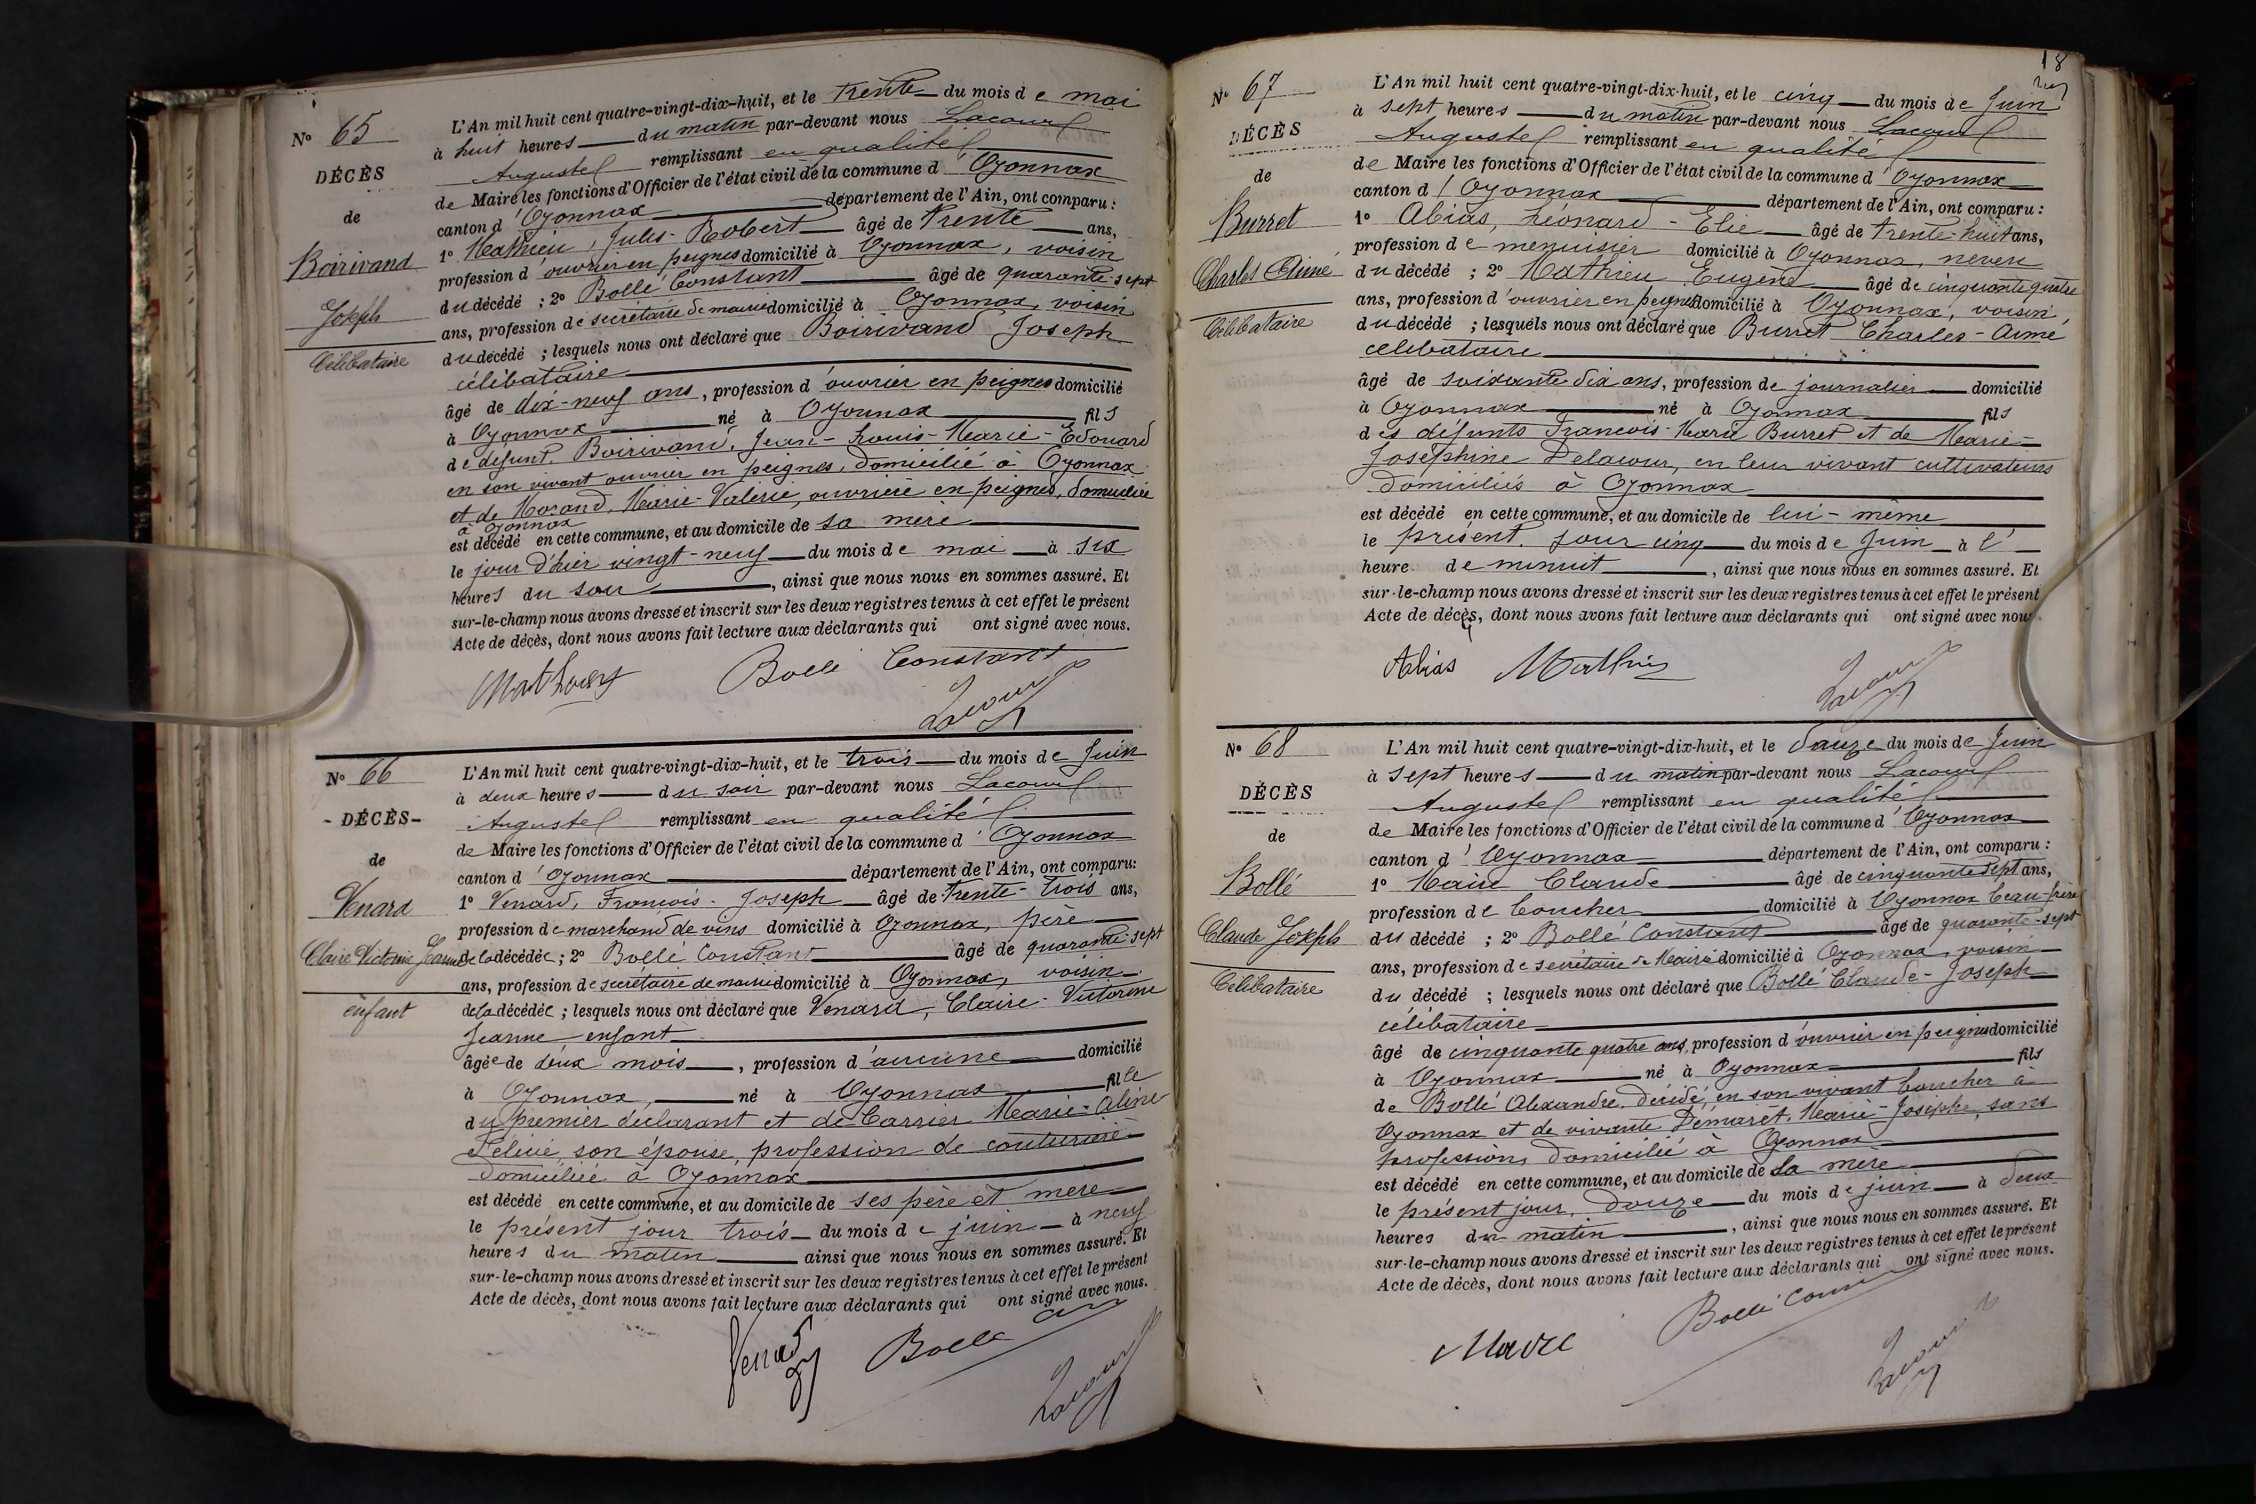 N° 65
DÉCÈS
de
Boirivand
Joseph
Célibataire
L'An mil huit cent quatre-vingt-dix-huit, et le trente du mois de mai
à huit heures du matin par-devant nous Lacour
Auguste remplissant en qualité
de Maire les fonctions d'Officier de l'état civil de la commune d'Oyonnax
canton d'Oyonnax département de l'Ain, ont comparu :
1° Mathieu, Jules-Robert âgé de trente ans,
profession d'ouvrier en peignes domicilié à Oyonnax, voisin
du décédé ; 2° Bollé Constant âgé de quarante-sept
ans, profession de secrétaire de mairie domicilié à Oyonnax, voisin
du décédé ; lesquels nous ont déclaré que Boirivand Joseph
célibataire
âgé de dix-neuf ans, profession d'ouvrier en peignes domicilié
à Oyonnax né à Oyonnax fils
de défunt Boirivand, Jean-Louis-Marie-Edouard
en son vivant ouvrier en peignes, domicilié à Oyonnax
et de Morand, Marie-Valérie, ouvrière en peignes, domiciliée
à Oyonnax
est décédé en cette commune, et au domicile de sa mère
le jour d'hier vingt-neuf du mois de mai à six
heures du soir, ainsi que nous nous en sommes assuré. Et
sur-le-champ nous avons dressé et inscrit sur les deux registres tenus à cet effet le présent
Acte de décès, dont nous avons fait lecture aux déclarants qui ont signé avec nous.
Mathieu Bollé Constant
Lacour
N° 66
- DÉCÈS -
de
Venard
Claire Victorine Jeanne
enfant
L'An mil huit cent quatre-vingt-dix-huit, et le trois du mois de Juin
à deux heures du soir par-devant nous Lacour
Auguste remplissant en qualité
de Maire les fonctions d'Officier de l'état civil de la commune d'Oyonnax
canton d'Oyonnax département de l'Ain, ont comparu:
1° Venard, François-Joseph âgé de trente-trois ans,
profession de marchand de vins domicilié à Oyonnax, père
de la décédée ; 2° Bollé Constant âgé de quarante-sept
ans, profession de secrétaire de mairie domicilié à Oyonnax, voisin
de la décédée ; lesquels nous ont déclaré que Venard, Claire-Victorine
Jeanne enfant
âgée de deux mois, profession d'aucune domicilié
à Oyonnax, né à Oyonnax fille
du premier déclarant et de Carrier Marie-Aline
son épouse, profession de couturière
domiciliée à Oyonnax
est décédé en cette commune, et au domicile de ses père et mère
le présent jour trois du mois de juin à neuf
heures du matin ainsi que nous nous en sommes assuré. Et
sur-le-champ nous avons dressé et inscrit sur les deux registres tenus à cet effet le présent
Acte de décès, dont nous avons fait lecture aux déclarants qui ont signé avec nous.
Venard Bollé
Lacour
18
N° 67
DÉCÈS
de
Burret
Charles Aimé
Célibataire
L'An mil huit cent quatre-vingt-dix-huit, et le cinq du mois de Juin
à sept heures du matin par-devant nous Lacour
Auguste remplissant en qualité
de Maire les fonctions d'Officier de l'état civil de la commune d'Oyonnax
canton d'Oyonnax département de l'Ain, ont comparu :
1° Abias, Léonard-Elie âgé de trente-huit ans,
profession de menuisier domicilié à Oyonnax, neveu
du décédé ; 2° Mathieu Eugène âgé de cinquante quatre
ans, profession d'ouvrier en peignes domicilié à Oyonnax, voisin,
du décédé ; lesquels nous ont déclaré que Burret Charles-Aimé
célibataire
âgé de soixante dix ans, profession de journalier domicilié
à Oyonnax né à Oyonnax fils
des défunts François-Marie Burret et de Marie-
Joséphine Delacour, en leur vivant cultivateurs
domiciliés à Oyonnax
est décédé en cette commune, et au domicile de lui-même
le présent jour cinq du mois de Juin à l'
heure de minuit, ainsi que nous nous en sommes assuré. Et
sur-le-champ nous avons dressé et inscrit sur les deux registres tenus à cet effet le présent
Acte de décès, dont nous avons fait lecture aux déclarants qui ont signé avec nous.
Abias Mathieu
Lacour
N° 68
DÉCÈS
de
Bollé
Claude Joseph
Célibataire
L'An mil huit cent quatre-vingt-dix-huit, et le douze du mois de Juin
à sept heures du matin par-devant nous Lacour
Auguste remplissant en qualité
de Maire les fonctions d'Officier de l'état civil de la commune d'Oyonnax
canton d'Oyonnax département de l'Ain, ont comparu :
1° Maire Claude âgé de cinquante sept ans,
profession de boucher domicilié à Oyonnax beau-frère
du décédé ; 2° Bollé Constant âgé de quarante-sept
ans, profession de secrétaire de Mairie domicilié à Oyonnax, voisin
du décédé ; lesquels nous ont déclaré que Bollé Claude-Joseph
célibataire
âgé de cinquante quatre ans, profession d'ouvrier en peignes domicilié
à Oyonnax né à Oyonnax fils
de Bollé Alexandre décédé, en son vivant boucher à
Oyonnax et de vivante Démaret, Marie-Josephe, sans
profession, domicilié à Oyonnax
est décédé en cette commune, et au domicile de sa mère
le présent jour, douze du mois de juin à deux
heures du matin, ainsi que nous nous en sommes assuré. Et
sur-le-champ nous avons dressé et inscrit sur les deux registres tenus à cet effet le présent
Acte de décès, dont nous avons fait lecture aux déclarants qui ont signé avec nous.
Maire Bollé Const
Lacour